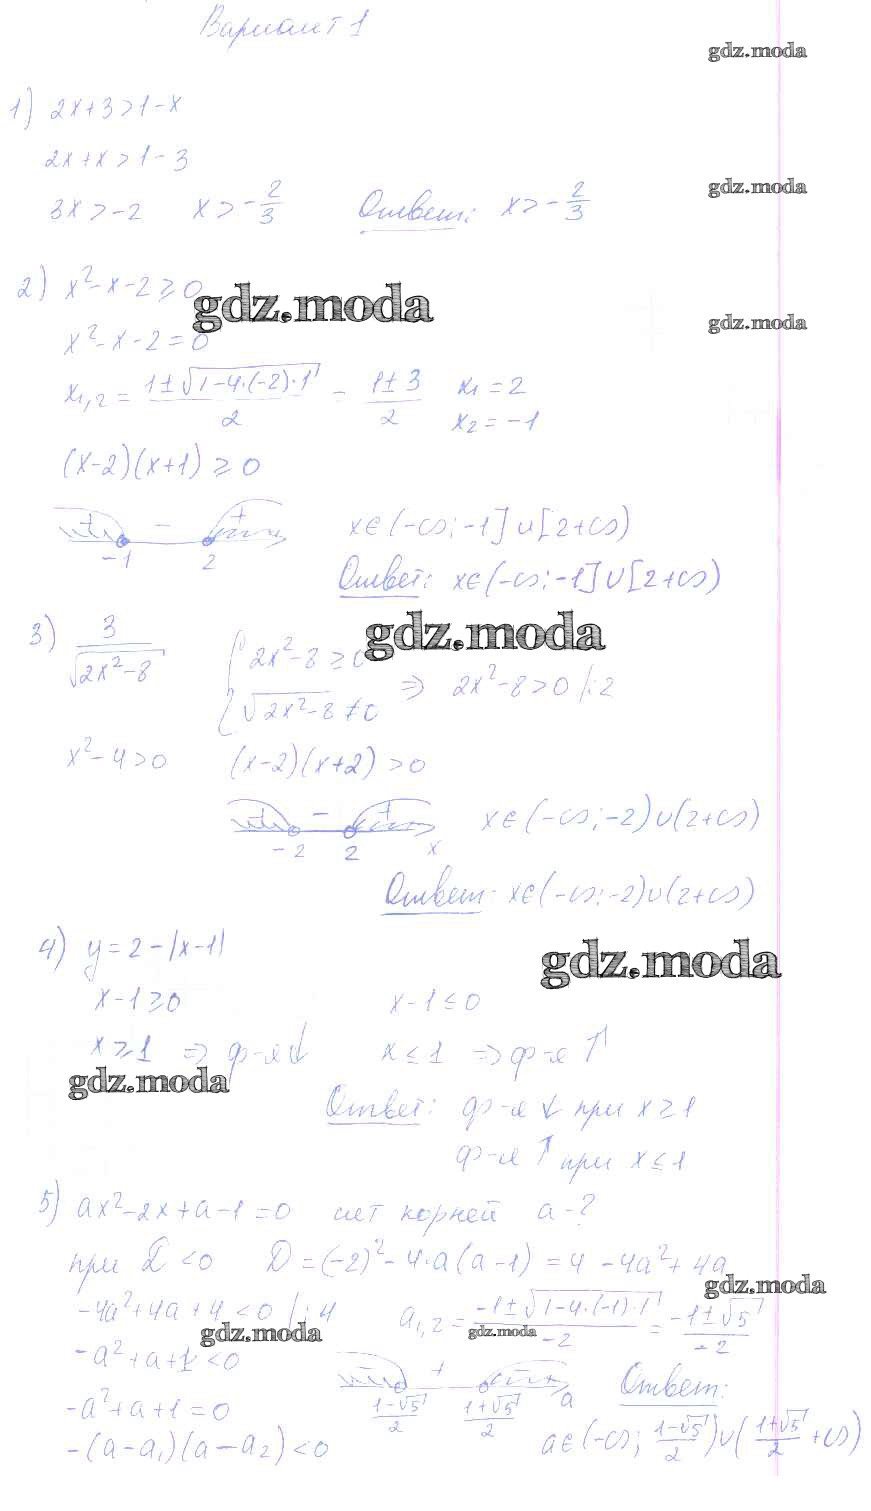 Вариант 1
gdz.moda
1) 2x+3>1-x
2x+x>1-3
gdz.moda
3x>-2 x>-2/3 Ответ: x>-2/3
2) x²-x-2≥0
gdz.moda
gdz.moda
x²-x-2=0
x₁,₂ = (1±√(1-4·(-2)·1))/2 = (1±3)/2 x₁=2
x₂=-1
(x-2)(x+1)≥0
+ - +
-1 2
x∈(-∞;-1]∪[2+∞)
Ответ: x∈(-∞;-1]∪[2+∞)
gdz.moda
3) 3/√(2x²-8) { 2x²-8≥0
√(2x²-8)≠0 ⇒ 2x²-8>0 |:2
x²-4>0 (x-2)(x+2)>0
+ - +
-2 2 x
x∈(-∞;-2)∪(2+∞)
Ответ: x∈(-∞;-2)∪(2+∞)
4) y=2-|x-1|
gdz.moda
x-1≥0 x-1≤0
x≥1 ⇒ ф-я↓ x≤1 ⇒ ф-я↑
gdz.moda
Ответ: ф-я ↓ при x≥1
ф-я ↑ при x≤1
5) ax²-2x+a-1=0 нет корней a-?
при D<0 D=(-2)²-4·a(a-1)=4-4a²+4a
gdz.moda
-4a²+4a+4<0 |:4 a₁,₂ = (-1±√(1-4·(-1)·1))/-2 = (-1±√5)/-2
gdz.moda
gdz.moda
-a²+a+1<0
- + -
(1-√5)/2 (1+√5)/2 a
Ответ:
-a²+a+1=0
-(a-a₁)(a-a₂)<0 a∈(-∞; (1-√5)/2)∪((1+√5)/2 +∞)